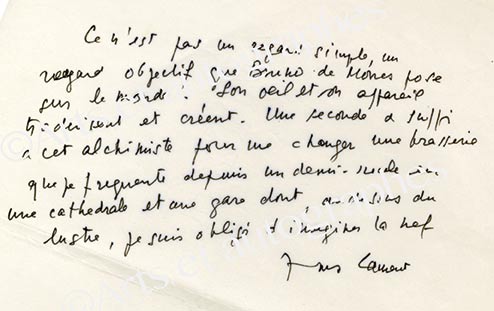 Ce n'est pas un regard simple, un
regard objectif que Bruno de Monès pose
sur le monde : Son œil et son appareil
choisissent et créent. Une seconde a suffi
à cet alchimiste pour me changer une brasserie
que je fréquente depuis un demi-siècle en
une cathédrale et une gare dont au-dessus du
lustre, je suis obligé d'imaginer la nef